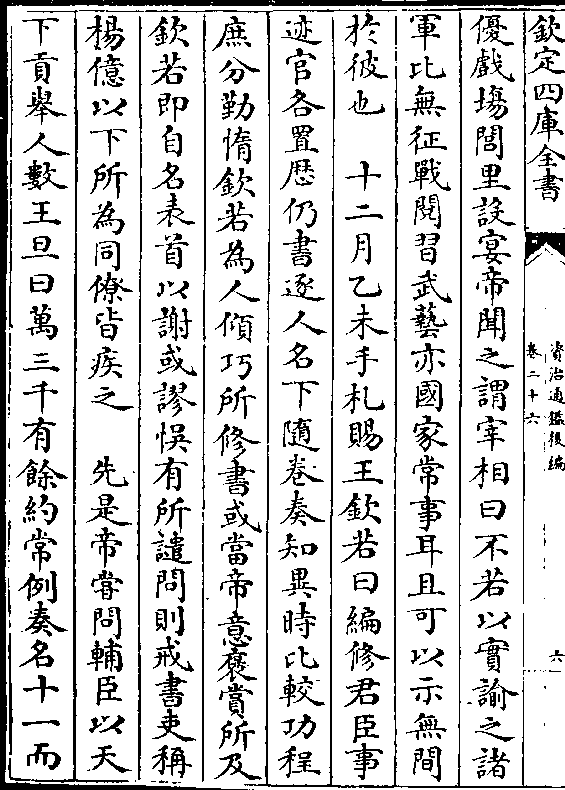 欽定四庫全書
資治通鑑後編
卷二十六
六
優戲塲閭里設宴帝聞之謂宰相曰不若以實諭之諸
軍比無征戰閱習武藝亦國家常事耳且可以示無間
於彼也　十二月乙未手札賜王欽若曰編修君臣事
迹官各置歷仍書逐人名下隨卷奏知異時比較功程
庶分勤惰欽若為人傾巧所修書或當帝意褒賞所及
欽若即自名表首以謝或謬悞有所譴問則戒書吏稱
楊億以下所為同僚皆疾之　先是帝嘗問輔臣以天
下貢舉人數王旦曰萬三千有餘約常例奏名十一而